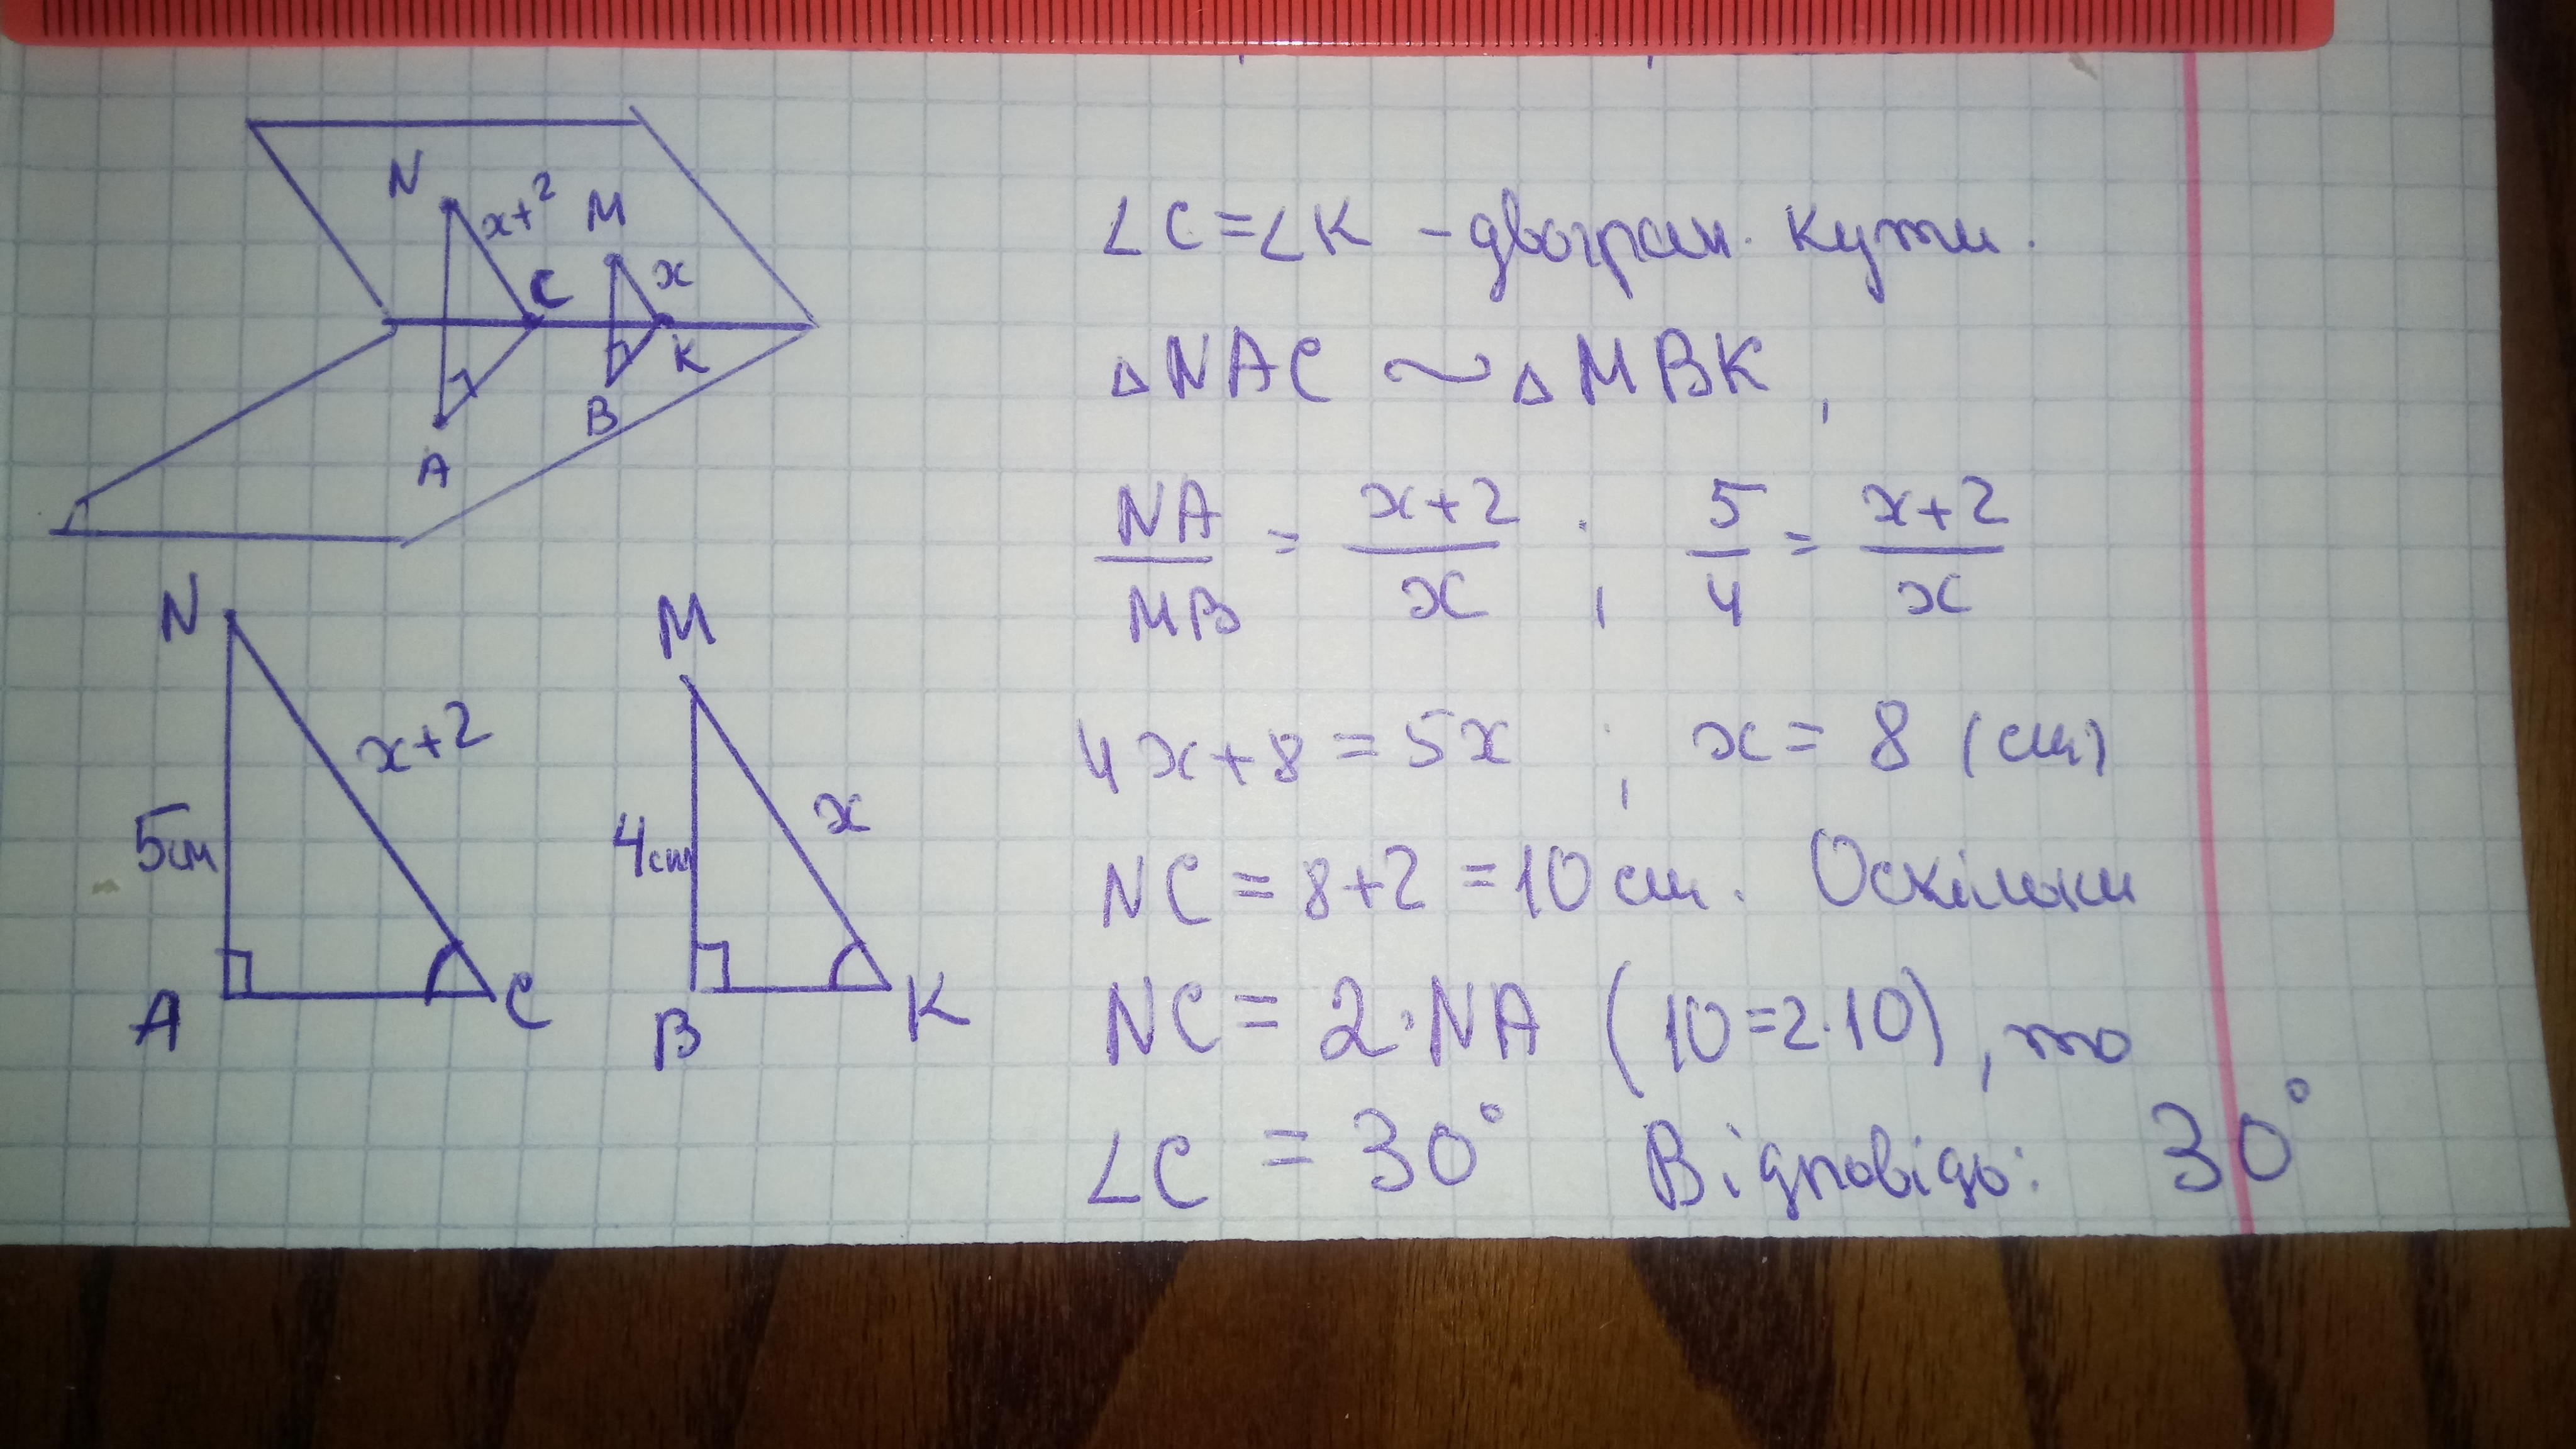 N
x+2
M
x
C
K
B
A
N
M
x+2
x
5см
4см
A
C
B
K
∠C=∠K – двогран. кути.
△NAC ~ △MBK,
NA/MB = x+2/x ; 5/4 = x+2/x
4x+8=5x ; x=8 (см)
NC=8+2=10 см. Оскільки
NC=2·NA (10=2·10), то
∠C = 30° Відповідь: 30°